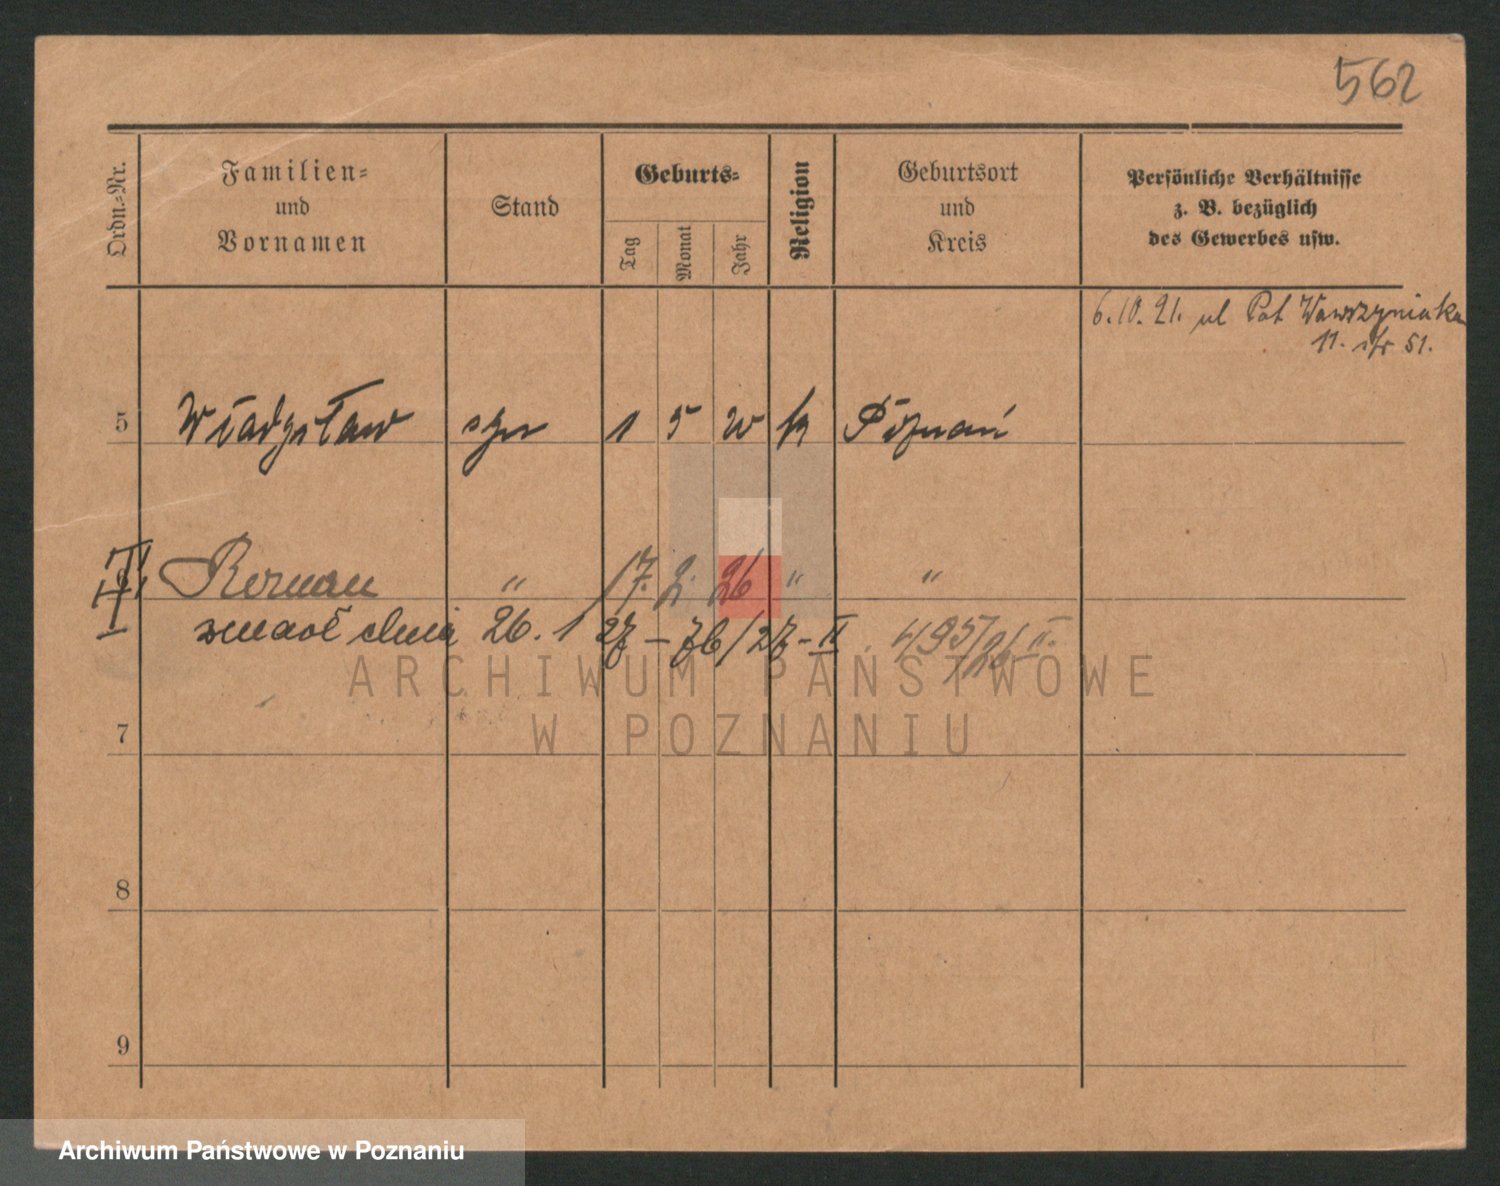 562
Ordn.=Nr.
Familien=
und
Vornamen
Stand
Geburts=
Tag
Monat
Jahr
Religion
Geburtsort
und
Kreis
Persönliche Verhältnisse
z. B. bezüglich
des Gewerbes usw.
6.10.21. ul Pat Wawrzyniaka
11. 51.
5 Władysław syn 1 5 20 k Poznań
Roman " 17. 2. 26 " "
zmarł dnia 26. 1 27 – 76/27 – II. 495/26 II.
7
8
9
ARCHIWUM PAŃSTWOWE
W POZNANIU
Archiwum Państwowe w Poznaniu